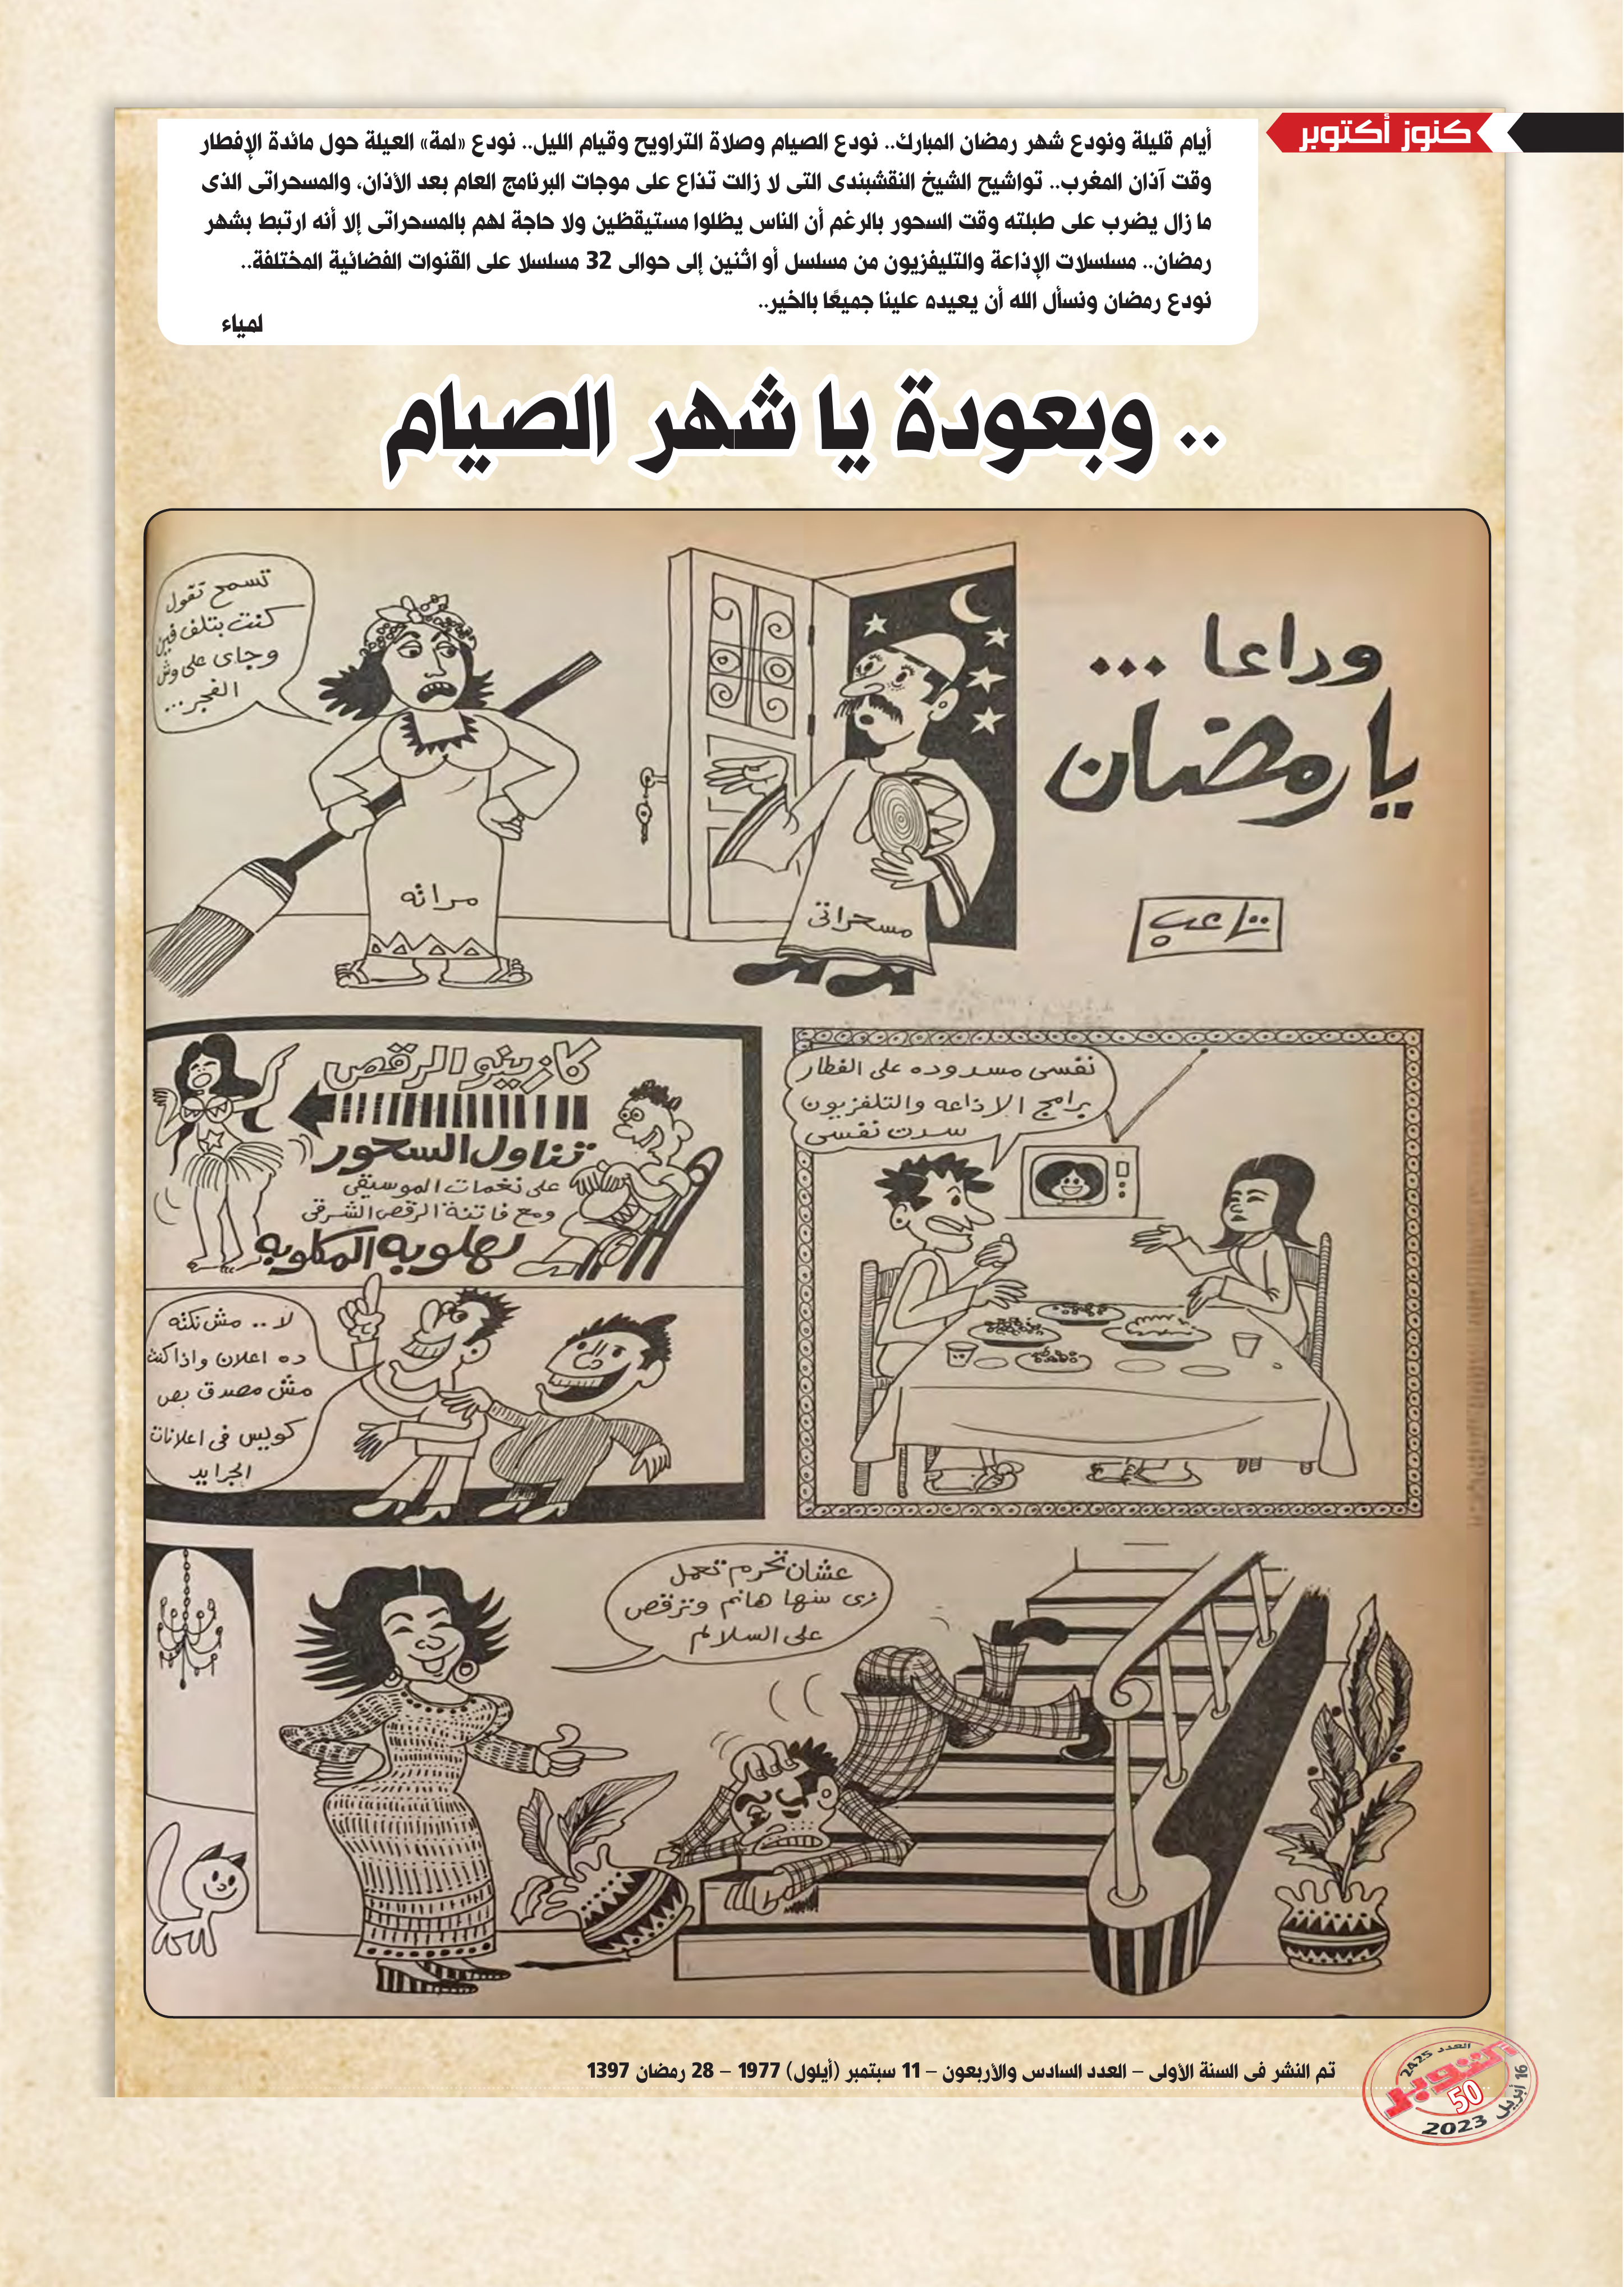 كنوز أكتوبر
أيام قليلة ونودع شهر رمضان المبارك.. نودع الصيام وصلاة التراويح وقيام الليل.. نودع «لمة» العيلة حول مائدة الإفطار
وقت آذان المغرب.. تواشيح الشيخ النقشبندى التى لا زالت تذاع على موجات البرنامج العام بعد الأذان، والمسحراتى الذى
ما زال يضرب على طبلته وقت السحور بالرغم أن الناس يظلوا مستيقظين ولا حاجة لهم بالمسحراتى إلا أنه ارتبط بشهر
رمضان.. مسلسلات الإذاعة والتليفزيون من مسلسل أو اثنين إلى حوالى 32 مسلسلا على القنوات الفضائية المختلفة..
نودع رمضان ونسأل الله أن يعيده علينا جميعًا بالخير..
لمياء
.. وبعودة يا شهر الصيام
وداعا ...
يا رمضان
مسحراتى
مراته
تسمح تقول
كنت بتلف فين
وجاى على وش
الفجر...
نفسى مسدوده على الفطار
برامج الاذاعه والتلفزيون
سدت نفسى
كازينو الرقص
تناول السحور
على نغمات الموسيقى
ومع فاتنة الرقص الشرقى
بهلوبه المكلوبه
لا .. مش نكته
ده اعلان واذا كنت
مش مصدق بص
كويس فى اعلانات
الجرايد
عشان تحرم تعمل
زى ستها هانم وترقص
على السلالم
تم النشر فى السنة الأولى – العدد السادس والأربعون – 11 سبتمبر (أيلول) 1977 – 28 رمضان 1397
العدد 2425
أكتوبر
50
16 أبريل 2023